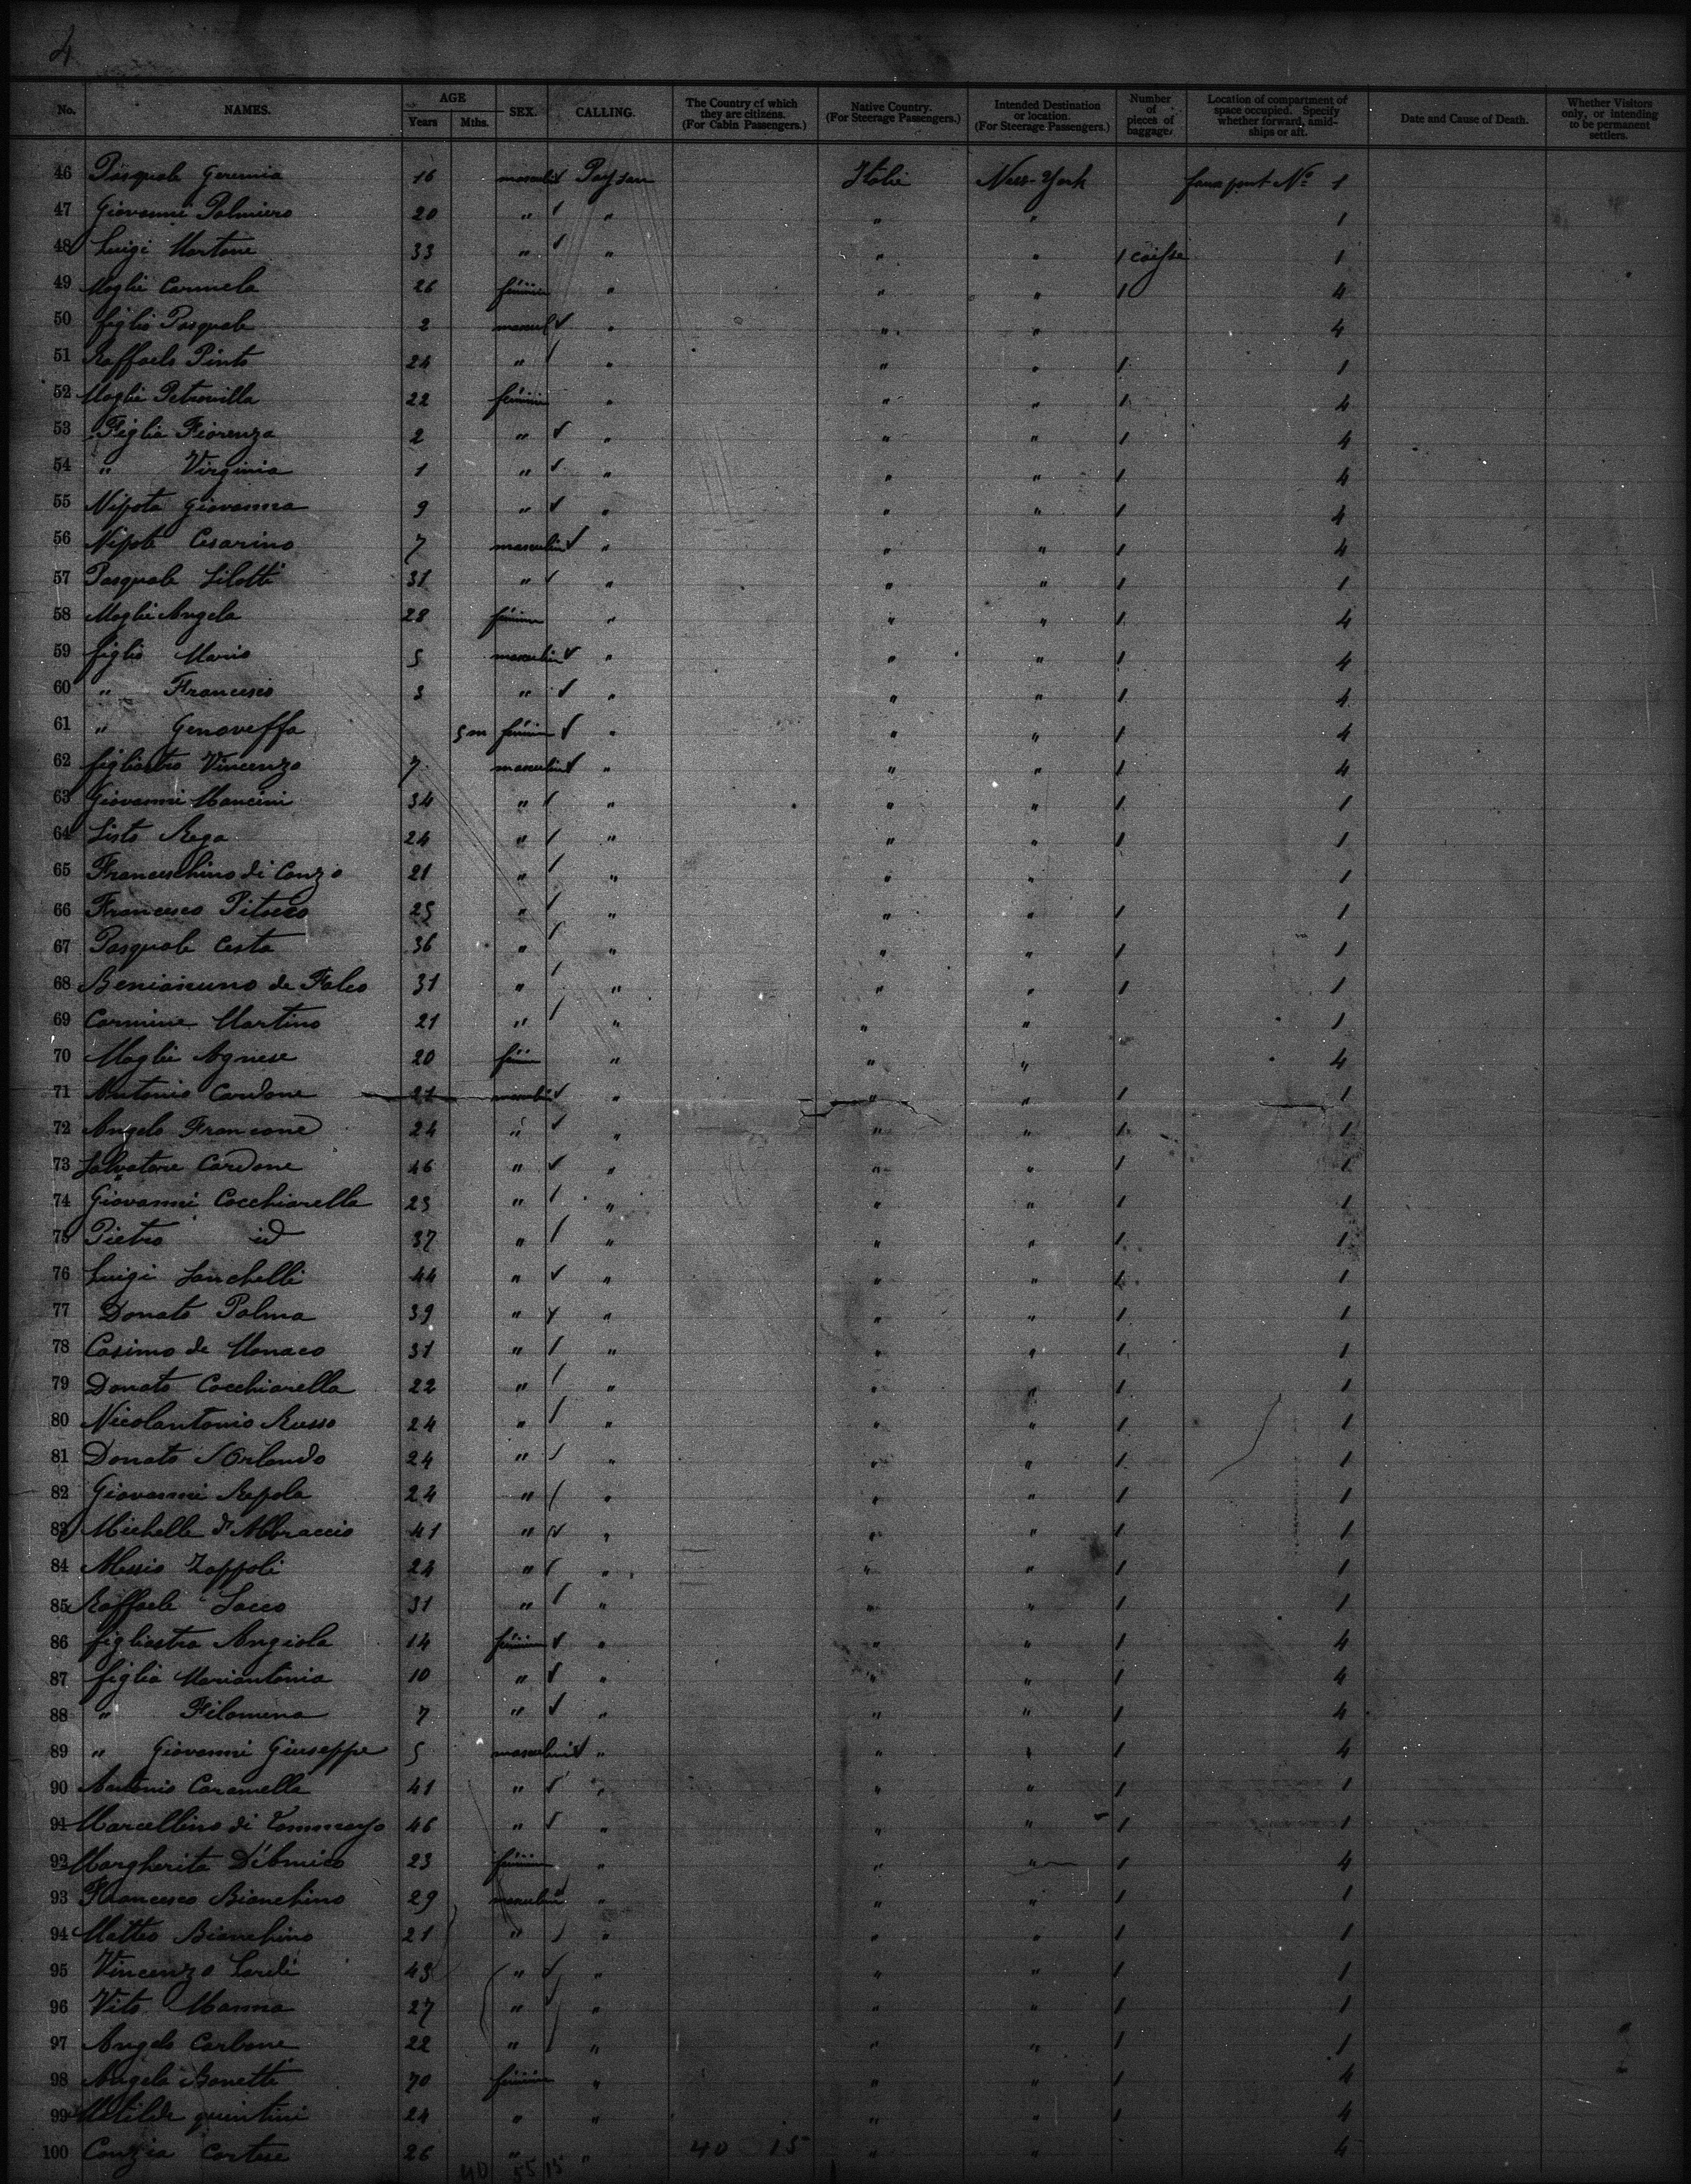 4
No. NAMES. AGE Years Mths. SEX. CALLING. The Country of which they are citizens. (For Cabin Passengers.) Native Country. (For Steerage Passengers.) Intended Destination or location. (For Steerage Passengers.) Number of pieces of baggage. Location of compartment of space occupied. Specify whether forward, amid-ships or aft. Date and Cause of Death. Whether Visitors only, or intending to be permanent settlers.
46 Pasquale Geremia 16 masculin Paysan Italie New-York faux pont No 1
47 Giovanni Palmiero 20 " " " " 1
48 Luigi Martone 33 " " " " 1 caisse 1
49 Moglie Carmela 26 féminin " " " 1 4
50 figlio Pasquale 2 mascul " " " 4
51 Raffaele Pinto 24 " " " " 1 1
52 Moglie Petronilla 22 féminin " " " 1 4
53 Figlia Fiorenza 2 " " " " 1 4
54 " Virginia 1 " " " " 1 4
55 Nipota Giovanna 9 " " " " 1 4
56 Nipote Cesarino 7 masculin " " " 1 4
57 Pasquale Silotti 31 " " " " 1 1
58 Moglie Angela 28 féminin " " " 1 4
59 figlio Mario 5 masculin " " " 1 4
60 " Francesco 3 " " " " 1 4
61 " Genoveffa 5 m féminin " " " 1 4
62 figliastro Vincenzo 7 masculin " " " 1 4
63 Giovanni Mancini 34 " " " " 1 1
64 Sisto Rega 24 " " " " 1 1
65 Franceschino di Conzo 21 " " " " 1
66 Francesco 25 " " " " 1 1
67 Pasquale Cesta 36 " " " " 1 1
68 de Falco 31 " " " " 1 1
69 Carmine Martino 21 " " " " 1
70 Moglie Agnese 20 fém " " " 4
71 Antonio Cardone 21 masculin " " " 1 1
72 Angelo Francone 24 " " " " 1 1
73 Salvatore Cardone 46 " " " " 1 1
74 Giovanni Cocchiarella 23 " " " " 1 1
75 Pietro id 37 " " " " 1 1
76 Luigi Sanchelli 44 " " " " 1 1
77 Donato Palma 39 " " " " 1 1
78 Cosimo de Monaco 31 " " " " 1 1
79 Donato Cocchiarella 22 " " " " 1 1
80 Nicolantonio Russo 24 " " " " 1 1
81 Donato d'Orlando 24 " " " " 1 1
82 Giovanni Repola 24 " " " " 1 1
83 Michelle d'Abbraccio 41 " " " " 1 1
84 Alessio Zoppoli 24 " " " " 1 1
85 Raffaele Sacco 31 " " " " 1 1
86 figliastra Angiola 14 féminin " " " 1 4
87 figlia Mariantonia 10 " " " " 1 4
88 " Filomena 7 " " " " 1 4
89 " Giovanni Giuseppe 5 masculin " " " 1 4
90 Antonio Caramella 41 " " " " 1 1
91 Marcellino di Tommaso 46 " " " " 1 1
92 Margherita D'Amico 23 féminin " " " 1 4
93 Francesco Bianchino 29 masculin " " " 1 1
94 Matteo Bianchino 21 " " " " 1 1
95 Vincenzo 43 " " " " 1 1
96 Vito Manna 27 " " " " 1 1
97 Angelo Carbone 22 " " " " 1 1
98 Angela Bonetti 70 féminin " " " 1 4
99 Matilde quintini 24 " " " " 1 4
100 Conzia Cortese 26 " " 40 15 " " 4
40 55 15